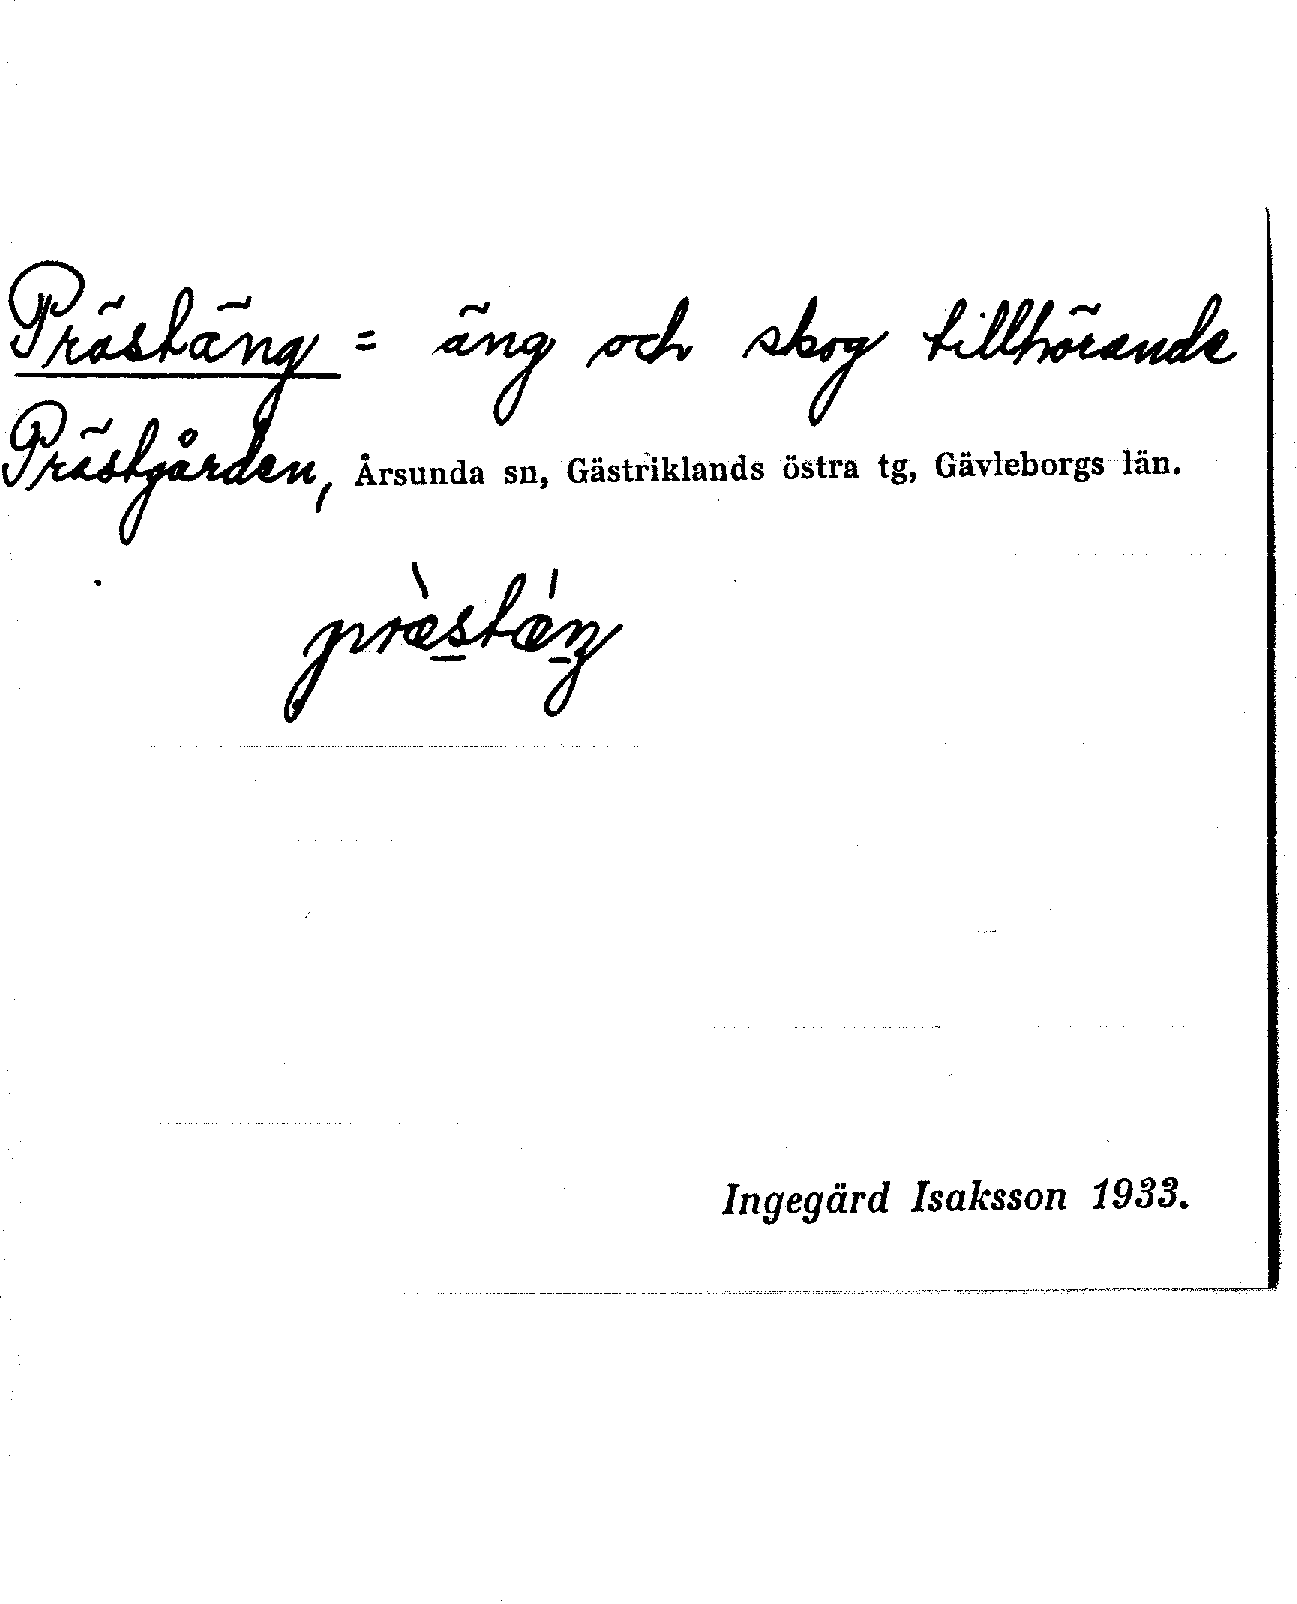 Prästäng = äng och skog tillhörande
Prästgården, Årsunda sn, Gästriklands östra tg, Gävleborgs län.
præ̀stǽŋ
Ingegärd Isaksson 1933.